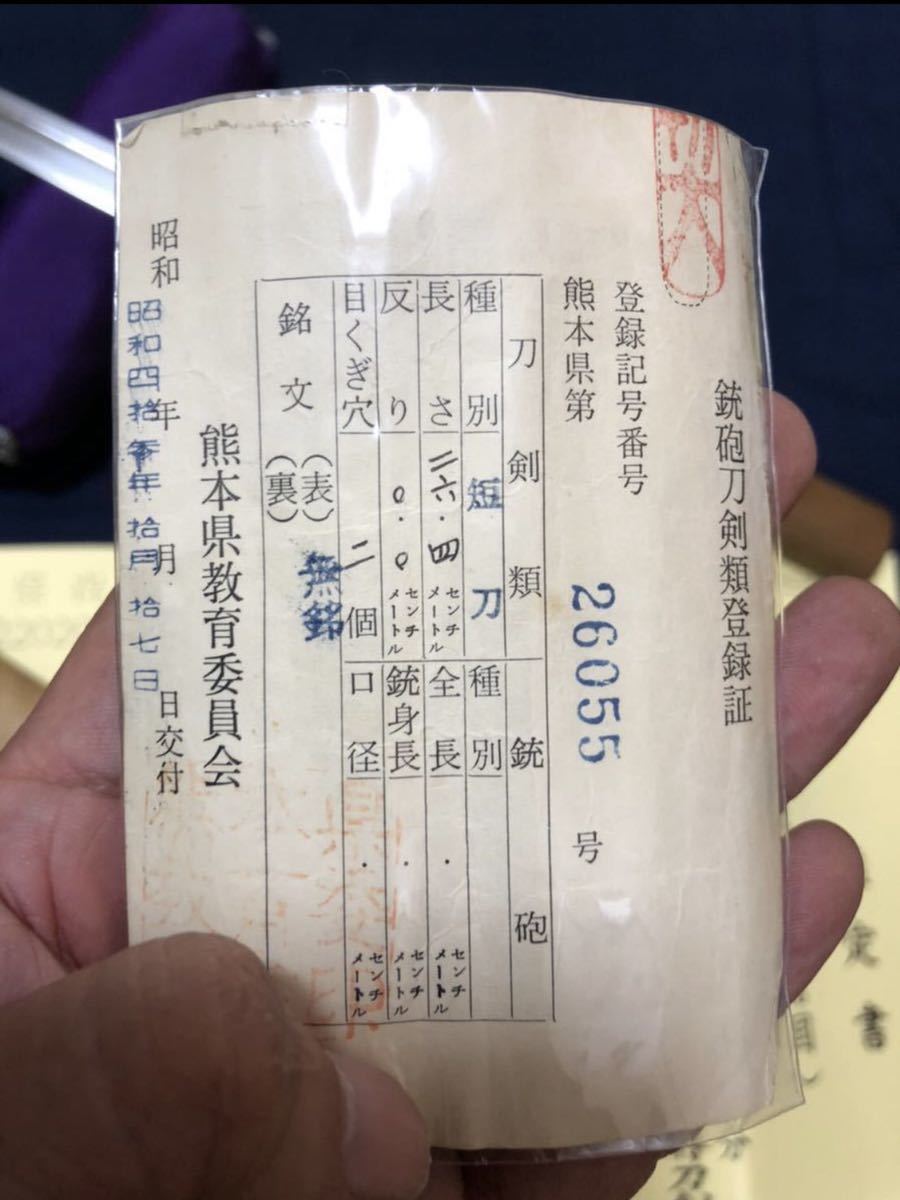 銃砲刀剣類登録証
登録記号番号
熊本県第 26055 号
刀剣類 銃砲
種別 短刀 種別
長さ 二六.四 センチメートル 全長 . センチメートル
反り 0.0 センチメートル 銃身長 . センチメートル
目くぎ穴 二個 口径 . センチメートル
銘文 (表) 無銘
(裏)
熊本県教育委員会
昭和 年 月 日交付
拾月拾七日
定書